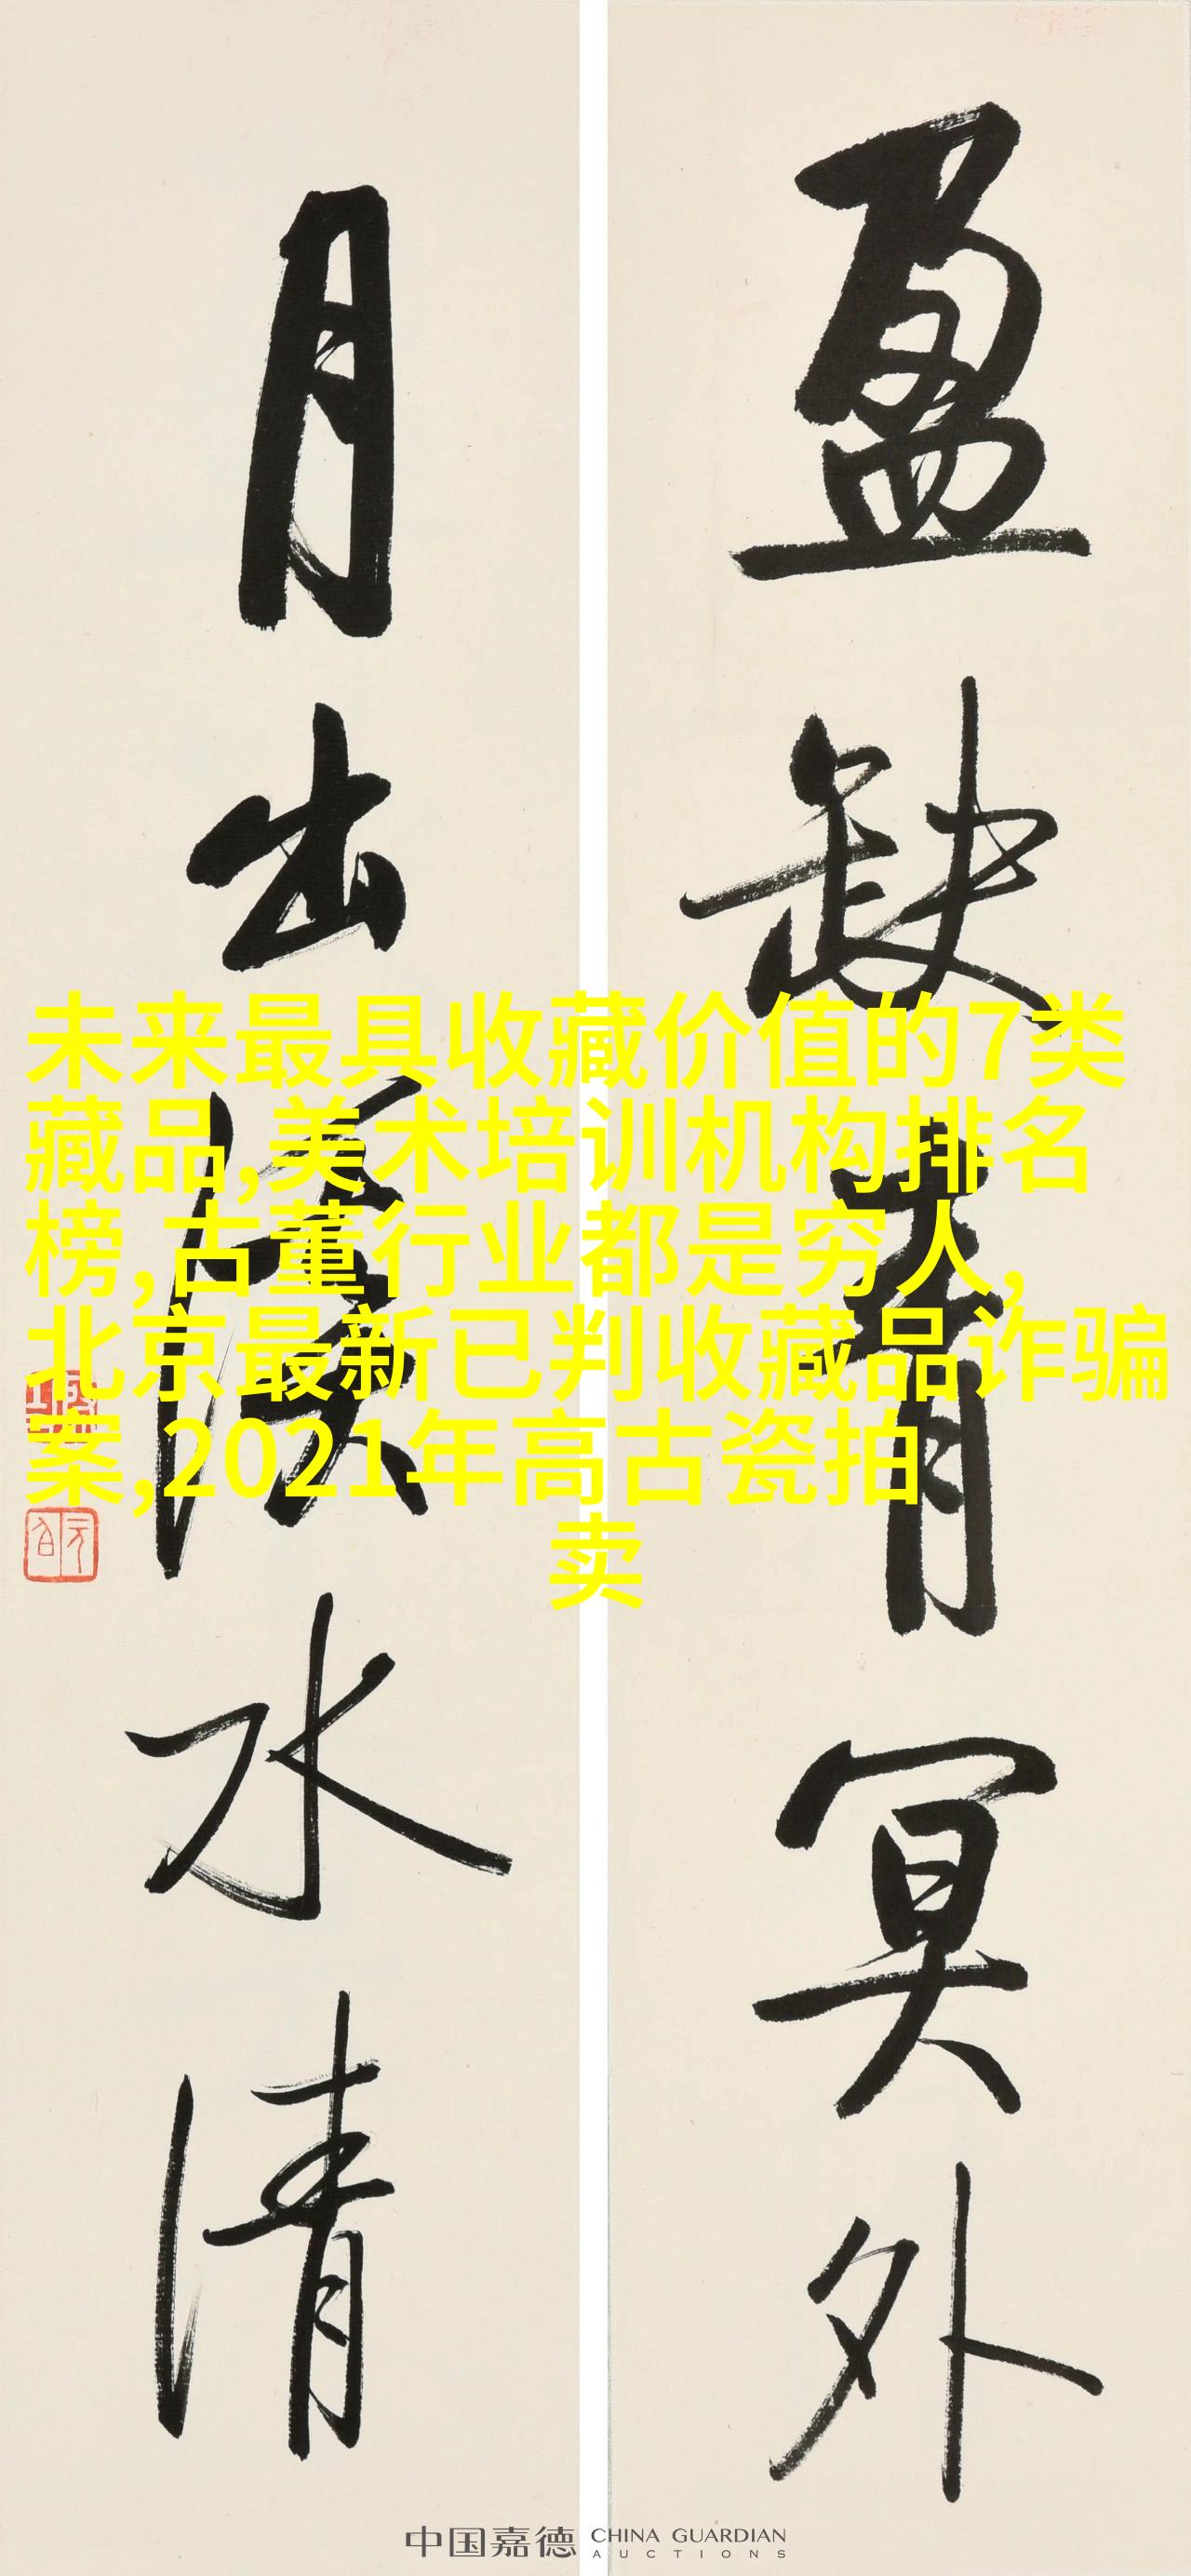 盈缺青冥外
月出溪水清
未来最具收藏价值的7类
藏品,美术培训机构排名
榜,古董行业都是穷人,
北京最新已判收藏品诈骗
案,2021年高古瓷拍
卖
中国嘉德 CHINA GUARDIAN
AUCTIONS